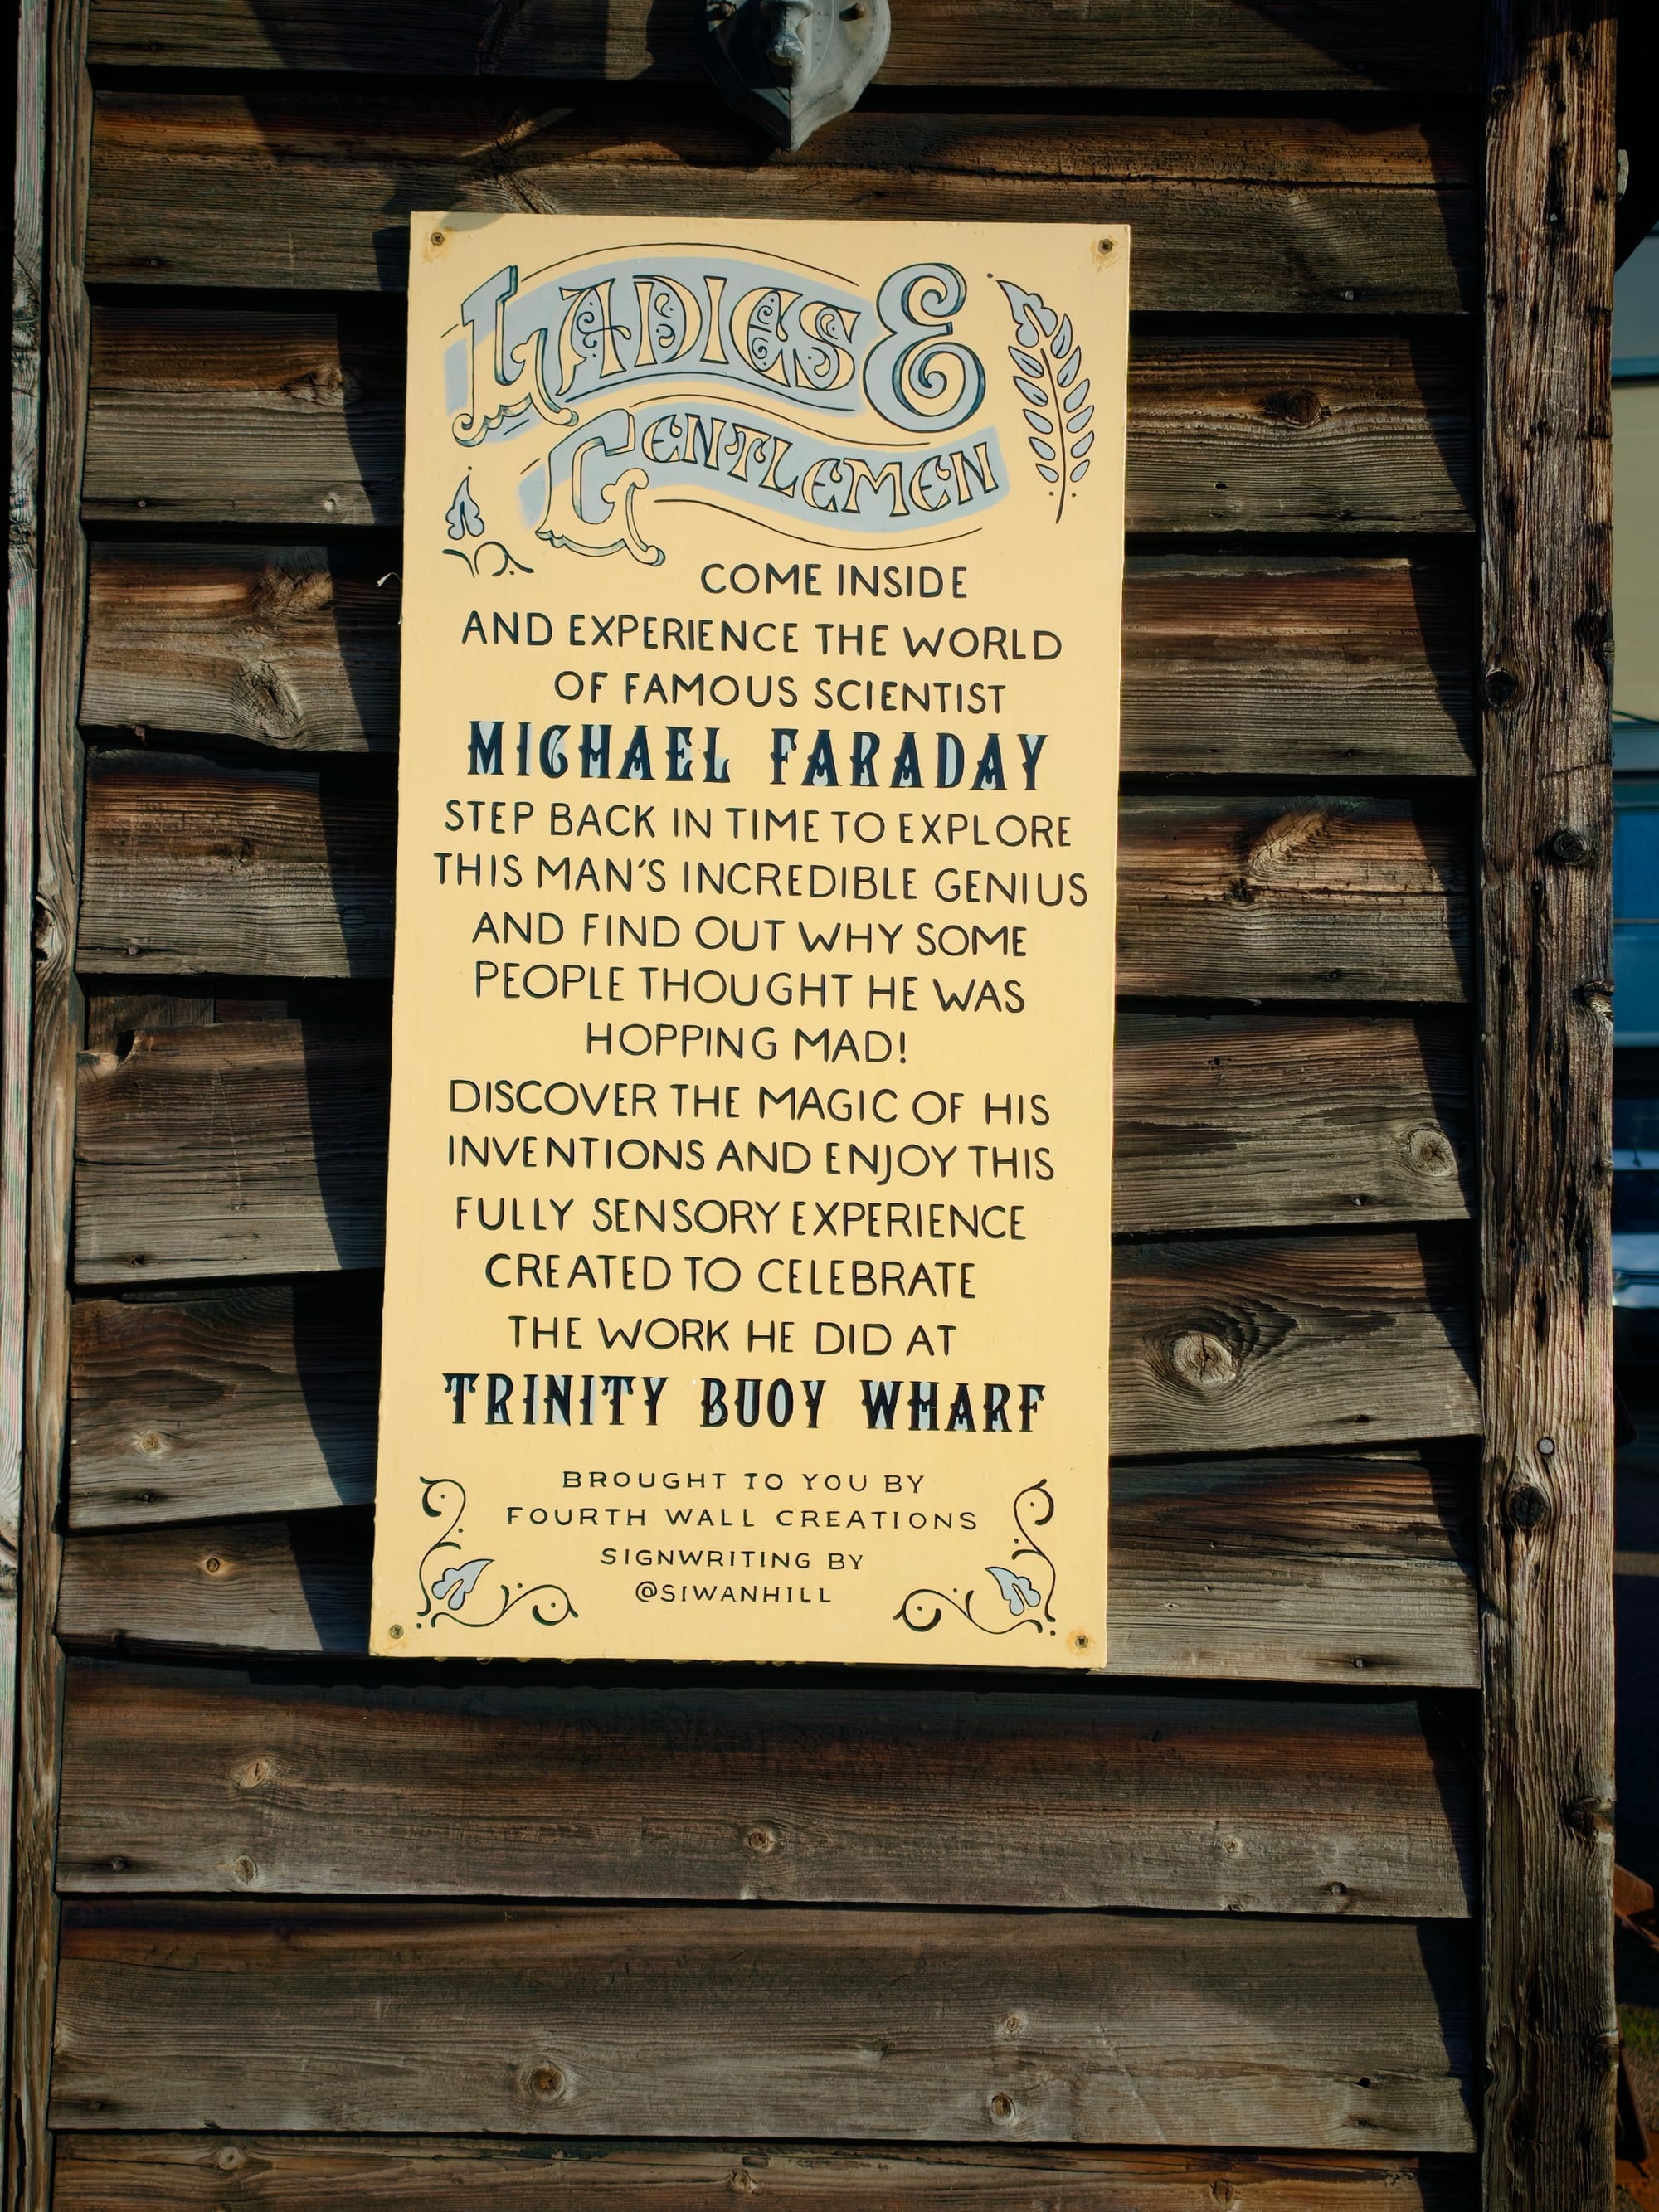 LADIES &
GENTLEMEN
COME INSIDE
AND EXPERIENCE THE WORLD
OF FAMOUS SCIENTIST
MICHAEL FARADAY
STEP BACK IN TIME TO EXPLORE
THIS MAN'S INCREDIBLE GENIUS
AND FIND OUT WHY SOME
PEOPLE THOUGHT HE WAS
HOPPING MAD!
DISCOVER THE MAGIC OF HIS
INVENTIONS AND ENJOY THIS
FULLY SENSORY EXPERIENCE
CREATED TO CELEBRATE
THE WORK HE DID AT
TRINITY BUOY WHARF
BROUGHT TO YOU BY
FOURTH WALL CREATIONS
SIGNWRITING BY
@SIWANHILL